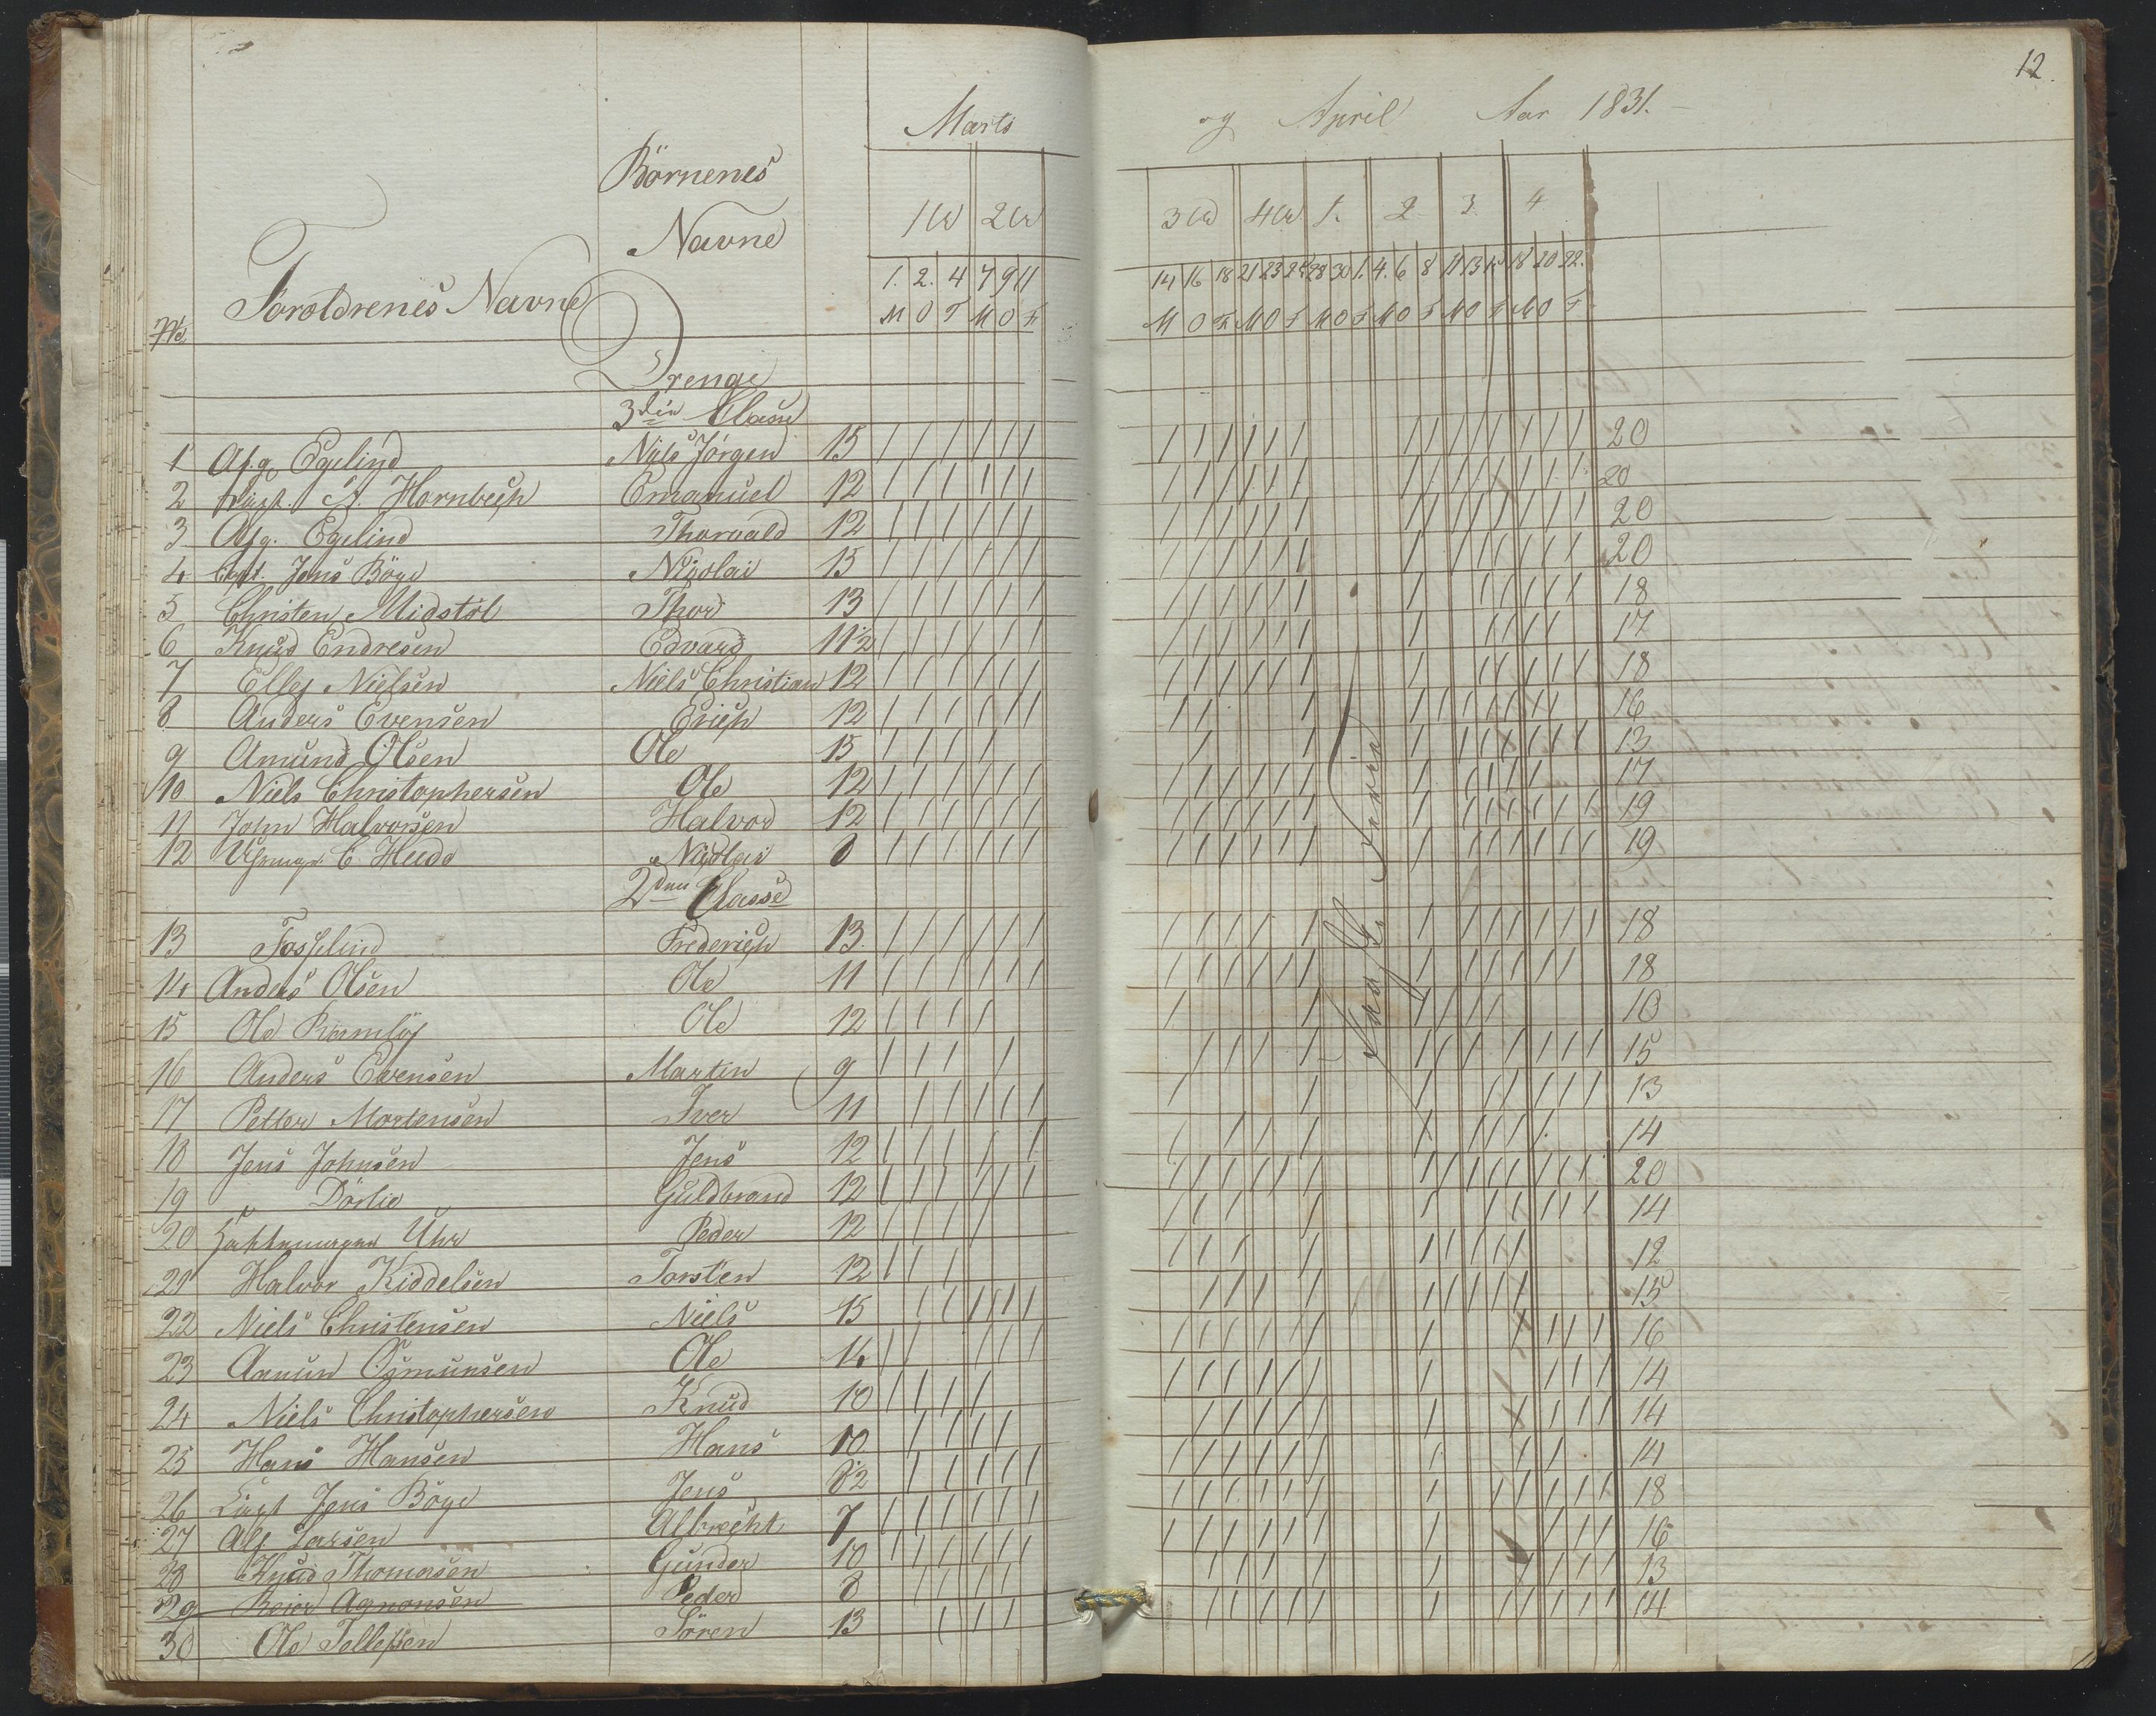 12.
Marts og April Aar 1831.
Börnenes
Navne
Foroldrenes Navne
No
1 U 2 U 3 U 4 U 1. 2 3 4
1. 2. 4 7 9 11 14 16 18 21 23 25 28 30 1. 4. 6 8 11 13 15 18 20 22.
M O F M O F M O F M O F M O F M O F M O F M O F
Drenge
3die Classe
1 Afg. Egelind Niels Jörgen 15 / / / / / / / / / / / / / / / / / / / / 20
2 A. Hornbech Emanuel 12 20
3 Afg. Egelind Thorvald 12 20
4 Capt. Jens Böye Nicolai 15 20
5 Christen Midstöl Thor 13 18
6 Knud Endresen Edvard 11 1/2 17
7 Ellef Nielsen Niels Christian 12 18
8 Anders Evensen Erich 12 16
9 Amund Olsen Ole 15 13
10 Niels Christophersen Ole 12 17
11 John Halvorsen Halvor 12 19
12 C Heide Nicolai 8 19
2den Classe
13 Fosselind Frederich 13 18
14 Anders Olsen Ole 11 18
15 Ole Ole 12 10
16 Anders Evensen Martin 9 15
17 Petter Mortensen Iver 11 13
18 Jens Johnsen Jens 12 14
19 " Dörlie Guldbrand 12 20
20 Uhr Peder 12 14
21 Halvor Kiddelsen Torsten 12 12
22 Niels Christensen Niels 15 15
23 Aanun Osmunsen Ole 14 16
24 Niels Christophersen Knud 10 14
25 Hans Hansen Hans 10 14
26 Capt Jens Böye Jens 8 1/2 14
27 Alf Larsen Albrecht 7 18
28 Knud Thomasen Gunder 10 16
29 Reier Agnonsen Peder 8 13
30 Ole Tellefsen Sören 13 14
Paaske Ferie